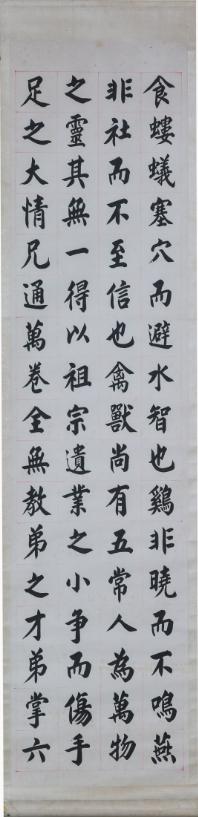 食螻蟻塞穴而避水智也鷄非曉而不鳴燕
非社而不至信也禽獸尚有五常人為萬物
之靈其無一得以祖宗遺業之小争而傷手
足之大情兄通萬卷全無教弟之才弟掌六